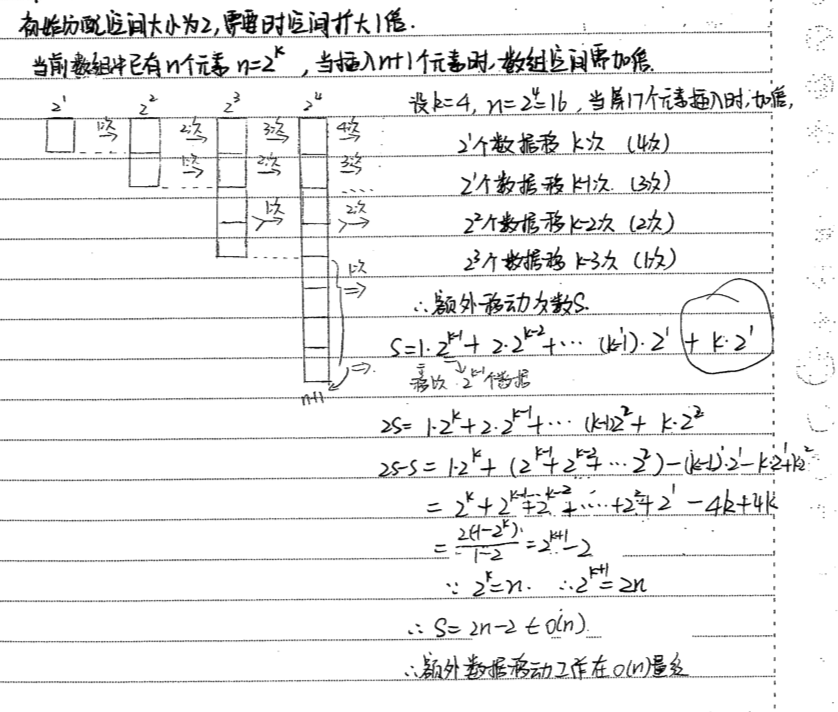 初始分配空间大小为2,需要时空间扩大1倍.
当前数组中已有n个元素 n=2^k ,当插入n+1个元素时,数组空间需加倍.
2^1 2^2 2^3 2^4 设k=4, n=2^4=16, 当第17个元素插入时,加倍,
1次 2次 3次 4次 2^1个数据移 k次 (4次)
1次 2次 3次 2^1个数据移 k-1次. (3次)
1次 2次 2^2个数据移 k-2次 (2次)
1次 2^3个数据移 k-3次 (1次)
∴额外移动次数S.
S=1·2^(k-1) + 2·2^(k-2) + ··· (k-1)·2^1 + k·2^1
移1次 2^(k-1)个数据
n+1
2S= 1·2^k + 2·2^(k-1) + ··· (k-1)2^2 + k·2^2
2S-S = 1·2^k + (2^(k-1) + 2^(k-2) + ··· 2^2) - (k-1)·2^1 - k·2^1 + k2^2
= 2^k + 2^(k-1) + 2^(k-2) + ··· + 2^2 + 2^1 - 4k + 4k
= 2(1-2^k)/(1-2) = 2^(k+1) - 2
∵ 2^k = n. ∴ 2^(k+1) = 2n
∴ S = 2n-2 ∈ O(n).
∴额外数据移动工作在O(n)量级